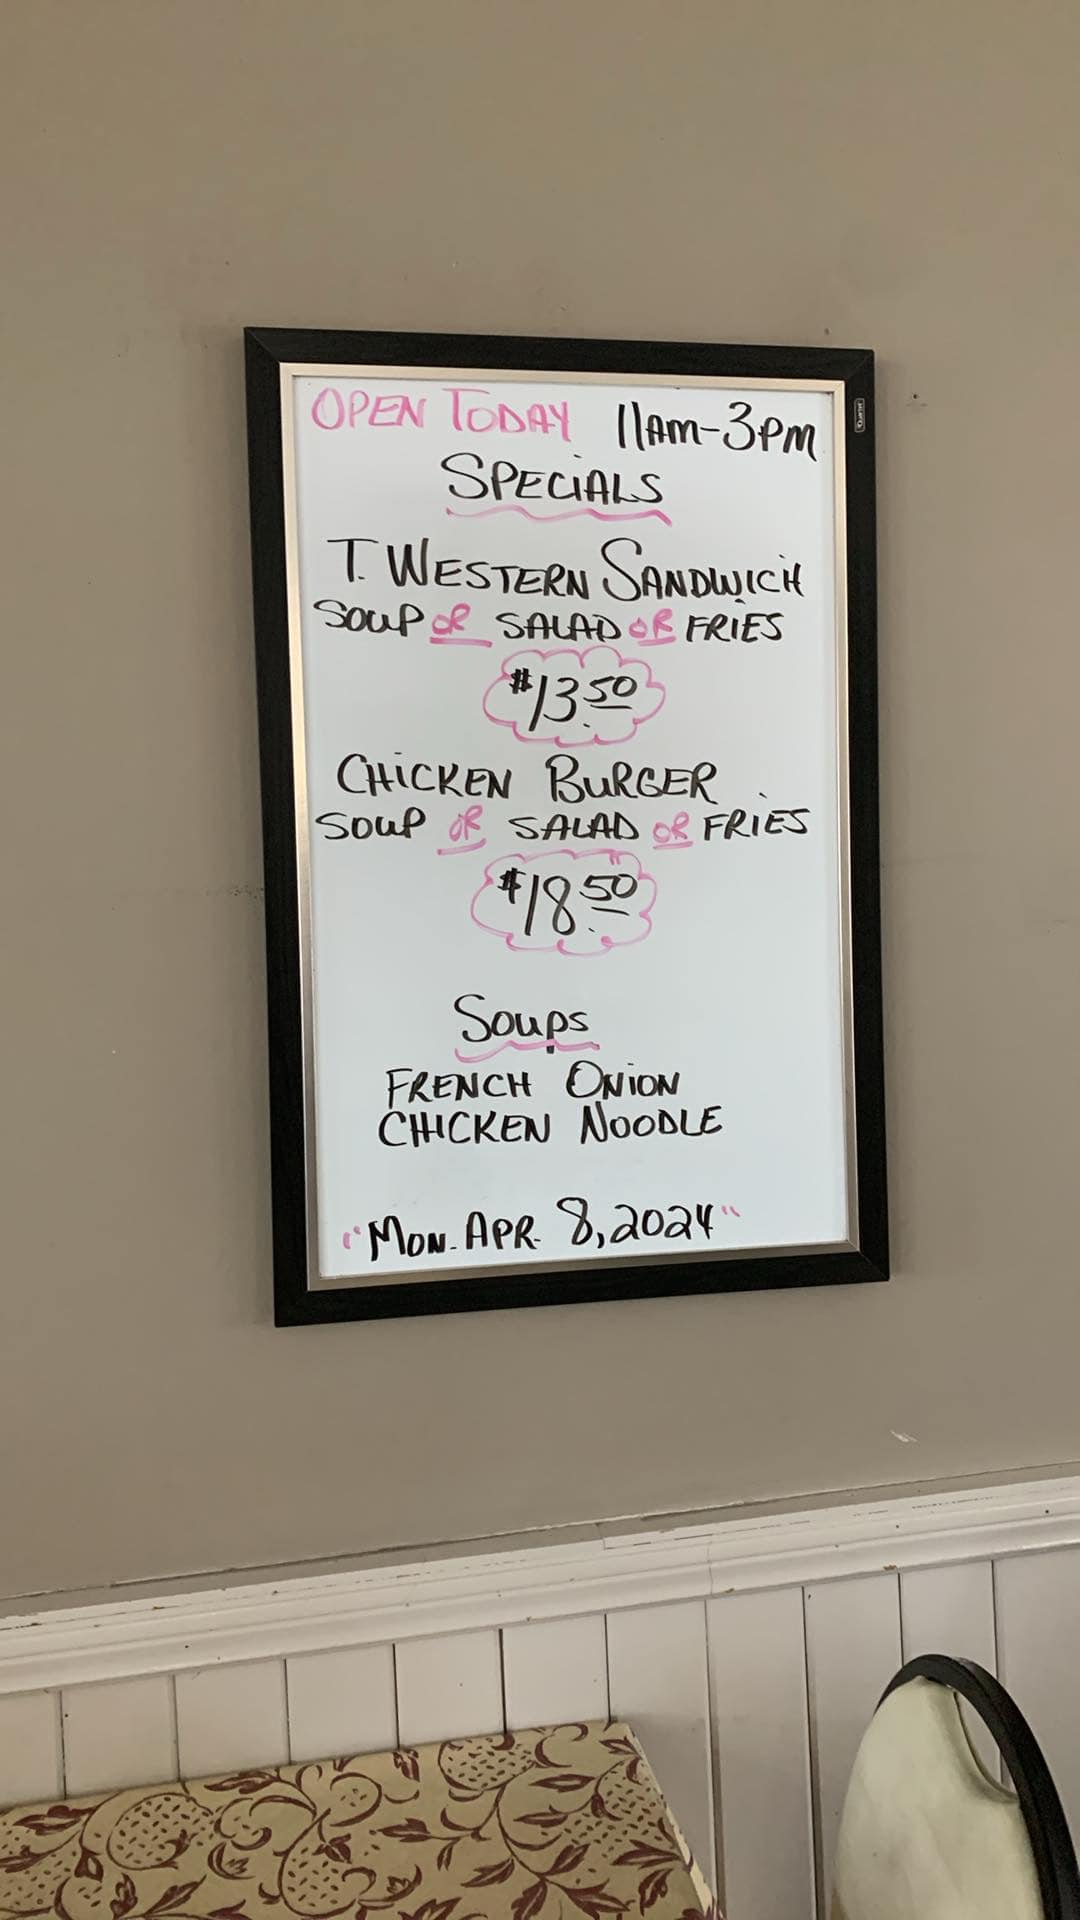 OPEN TODAY 11AM-3PM
SPECIALS
T. WESTERN SANDWICH
SOUP OR SALAD OR FRIES
$13.50
CHICKEN BURGER
SOUP OR SALAD OR FRIES
$18.50
SOUPS
FRENCH ONION
CHICKEN NOODLE
"MON. APR. 8, 2024"